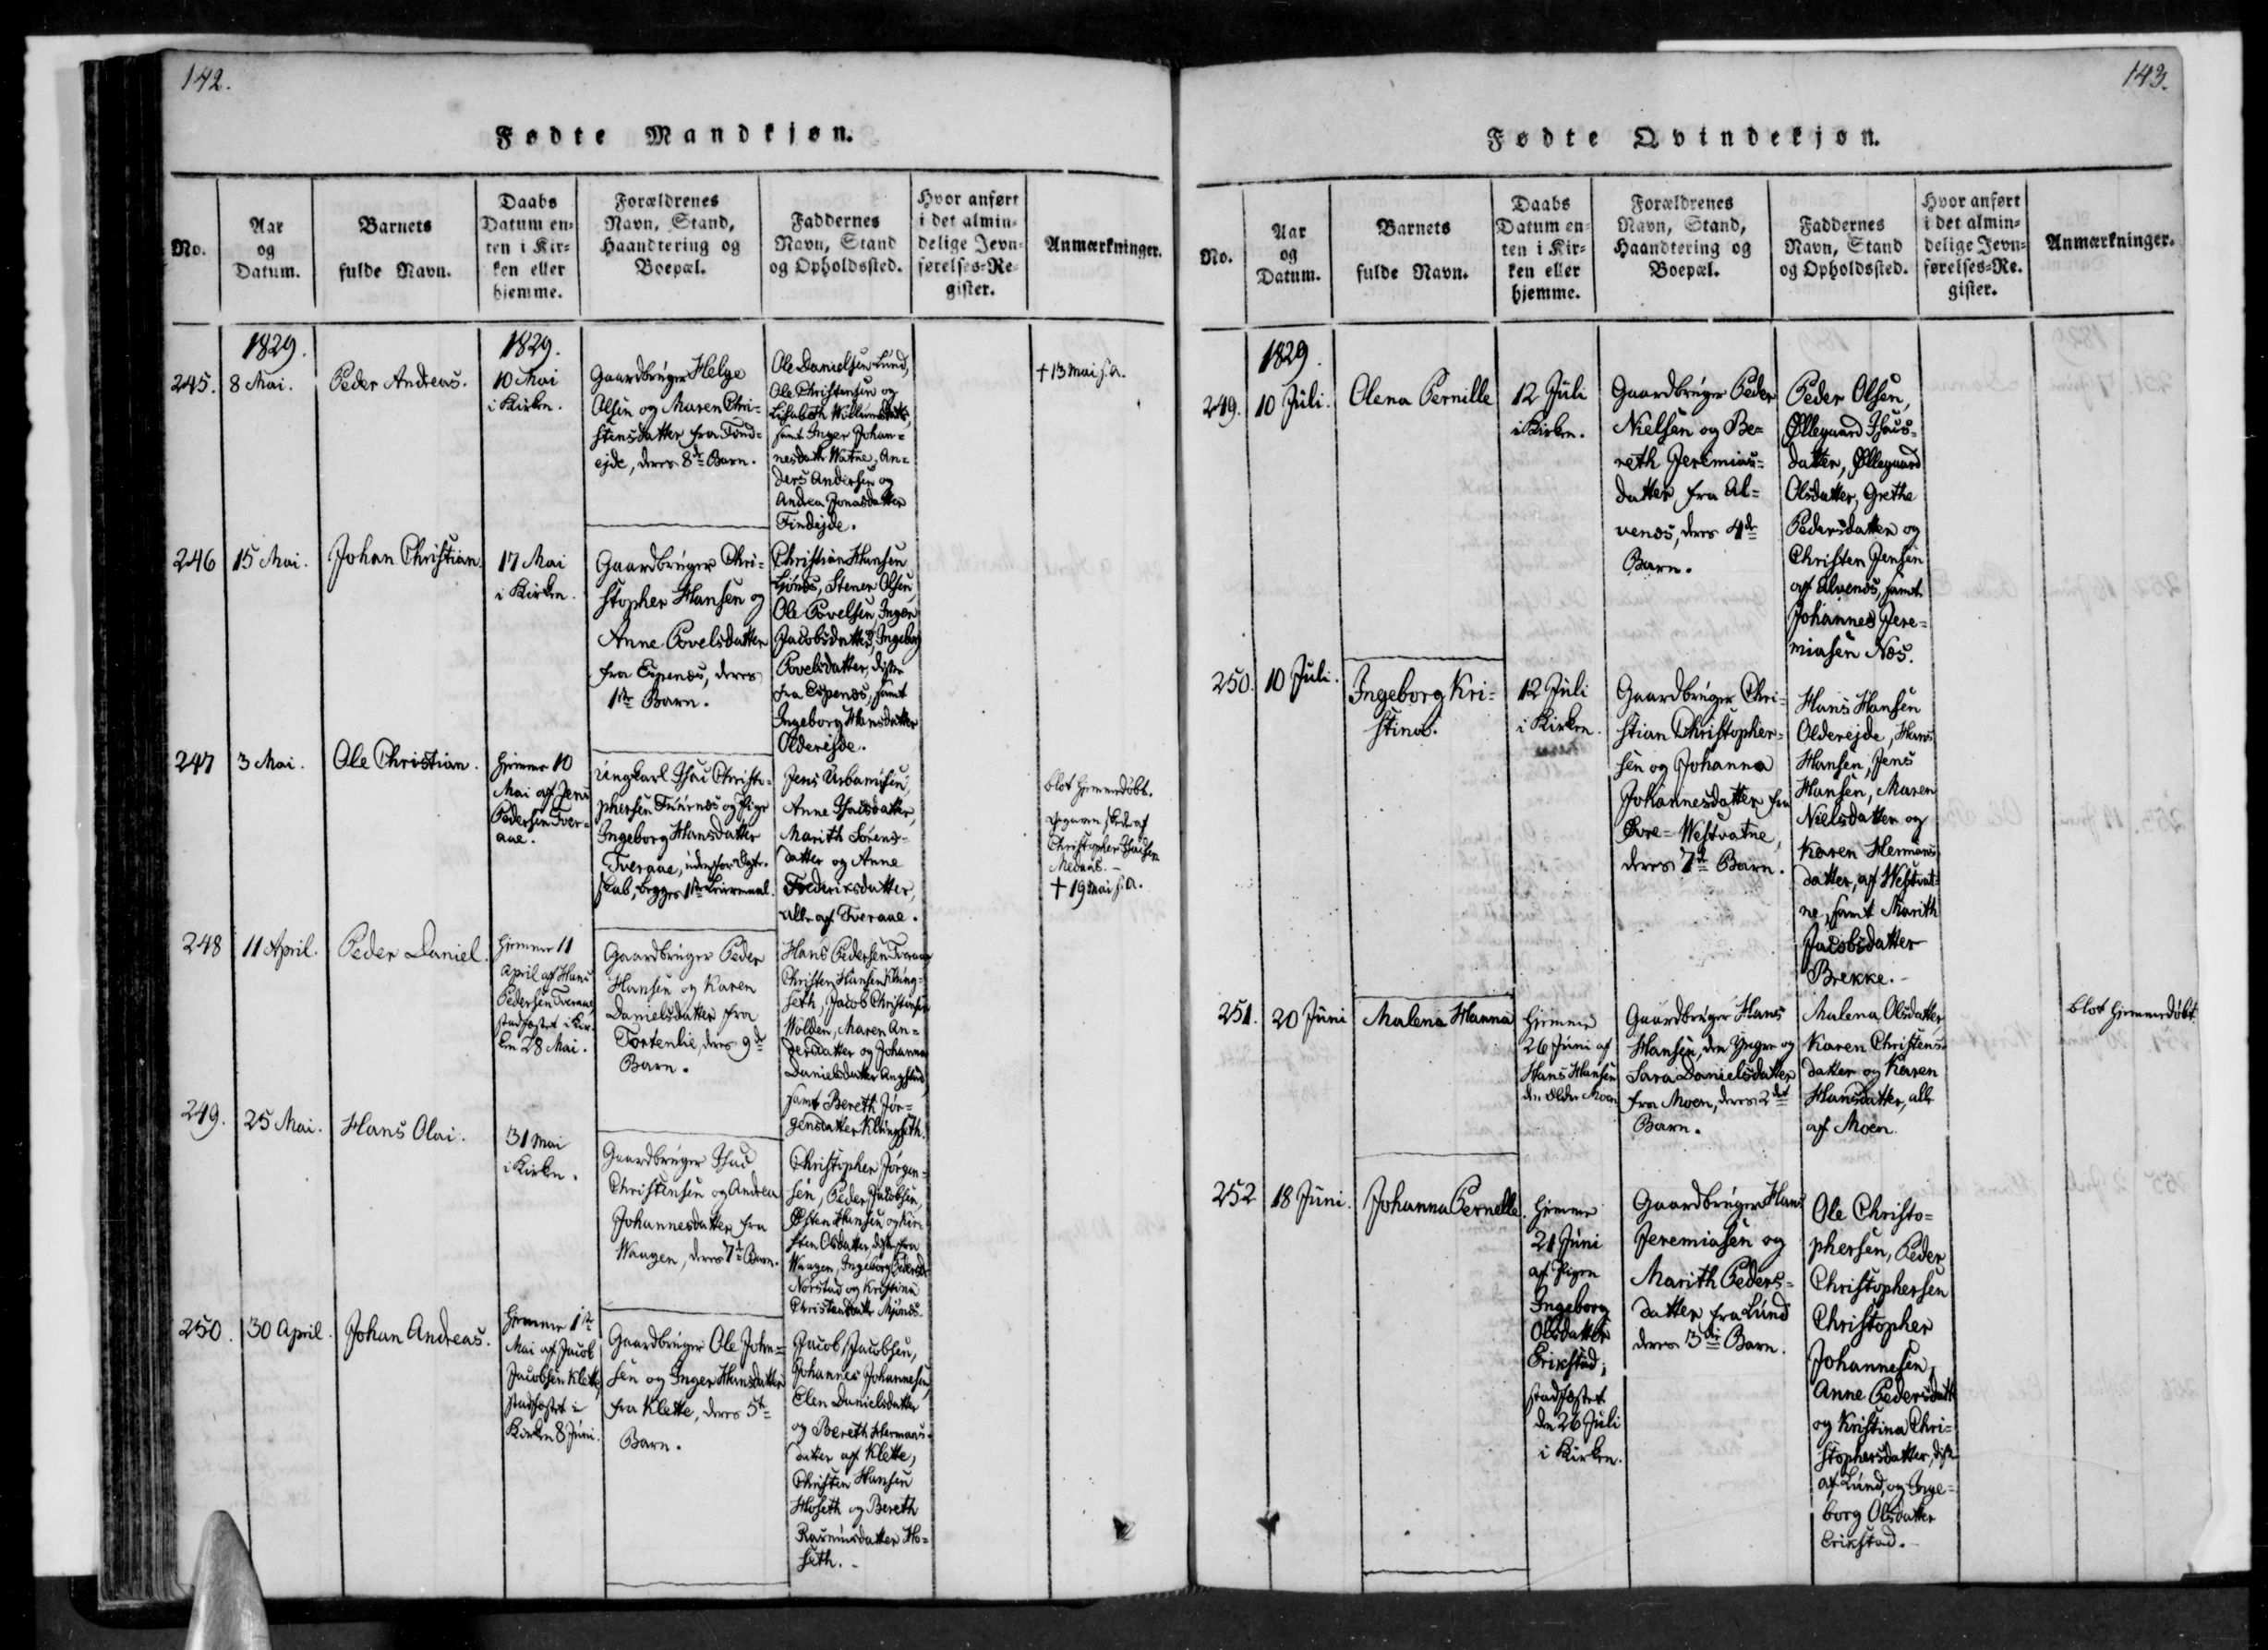 142.
Fødte Mandkjøn.
No.
Aar
og
Datum.
Barnets
fulde Navn.
Daabs
Datum en-
ten i Kir-
ken eller
hjemme.
Forældrenes
Navn, Stand,
Haandtering og
Boepæl.
Faddernes
Navn, Stand
og Opholdssted.
Hvor anført
i det almin-
delige Jevn-
førelses-Re-
gister.
Anmærkninger.
1829.
1829.
245.
8 Mai.
Peder Andreas.
10 Mai
i Kirken.
Gaardbruger Helge
Olsen og Maren Chri-
stensdatter fra Find-
ejde, deres 8de Barn.
Ole Danielsen Lund,
Ole Christensen og
Lisabeth Willumsdatter,
samt Inger Johan-
nesdatt Watne, An-
ders Andersen og
Andrea Jonasdatter
Findejde.
+ 13 Mai s.a.
246
15 Mai.
Johan Christian.
17 Mai
i Kirken.
Gaardbruger Chri-
stopher Hansen og
Anne Povelsdatter
fra Espenæs, deres
1ste Barn.
Christian Hansen
Stener Olsen,
Ole Povelsen, Inger
Jacobsdatter, Ingeborg
Povelsdatter, disse
fra Espenæs, samt
Ingeborg Hansdatter
Olderejde.
247
3 Mai.
Ole Christian.
hjemme 10
Mai af Jens
Pedersen Tver-
aae.
Ungkarl Isac Christo-
phersen og Pige
Ingeborg Hansdatter
Tveraae, udenfor Egte-
skab, begges 1ste Leiermaal.
Jens Urbanusen,
Anne Isacsdatter,
Marith Sørens-
datter og Anne
Frederiksdatter,
alle af Tveraae.
blot hjemmedøbt.
Christopher Isacsen
+ 19 Mai s.a.
248
11 April.
Peder Daniel.
hjemme 11
April af Hans
Pedersen Tveraae,
stadfæstet i Kir-
ken 28 Mai.
Gaardbruger Peder
Hansen og Karen
Danielsdatter fra
Tortenlie, deres 9de
Barn.
Hans Pedersen Tveraae
Christen Hansen Kling-
seth, Jacob Christensen
Wolden, Maren An-
dersdatter og Johanna
Danielsdatter Angstad,
samt Bereth Jør-
gensdatter Klingseth.
249.
25 Mai.
Hans Olai.
31 Mai
i Kirken.
Gaardbruger Isac
Christensen og Andrea
Johannesdatter fra
Waagen, deres 7de Barn.
Christopher Jørgen-
sen, Peder Jacobsen,
Østen Hansen og Kir-
sten Olsdatter, disse fra
Waagen, Ingeborg Pedersdr
Norstad og Kristina
Christensdatt Mjønæs.
250.
30 April.
Johan Andreas.
hjemme 1ste
Mai af Jacob
Jacobsen Klette,
stadfæstet i
Kirken 8 Juni.
Gaardbruger Ole John-
sen og Inger Hansdatter
fra Klette, deres 5te
Barn.
Jacob Jacobsen,
Johannes Johannesen,
Elen Danielsdatter
og Bereth Hermans-
datter af Klette,
Christen Hansen
Hoseth og Bereth
Rasmusdatter Ho-
seth.
143.
Fødte Qvindekjøn.
No.
Aar
og
Datum.
Barnets
fulde Navn.
Daabs
Datum en-
ten i Kir-
ken eller
hjemme.
Forældrenes
Navn, Stand,
Haandtering og
Boepæl.
Faddernes
Navn, Stand
og Opholdssted.
Hvor anført
i det almin-
delige Jevn-
førelses-Re-
gister.
Anmærkninger.
1829.
249.
10 Juli.
Olena Pernille
12 Juli
i Kirken.
Gaardbruger Peder
Nielsen og Be-
reth Jeremias-
datter, fra Al-
venæs, deres 4de
Barn.
Peder Olsen,
Øllegaard Isacs-
datter, Øllegaard
Olsdatter, Grethe
Pedersdatter og
Christen Jensen
af Alvenæs, samt
Johannes Jere-
miasen Næs.
250.
10 Juli.
Ingeborg Kri-
stina.
12 Juli
i Kirken.
Gaardbruger Chri-
stian Christopher-
sen og Johanna
Johannesdatter fra
Øvre-Westvatne,
deres 7de Barn.
Hans Hansen
Olderejde, Hans
Hansen, Jens
Hansen, Maren
Nielsdatter og
Karen Hermans-
datter, af Westvat-
ne, samt Marith
Jacobsdatter
Brekke.
251.
20 Juni
Malena Hanna
hjemme
26 Juni af
Hans Hansen
den Eldre Moen
Gaardbruger Hans
Hansen, den Yngre og
Sara Danielsdatter
fra Moen, deres 2det
Barn.
Malena Olsdatter,
Karen Christens-
datter og Karen
Hansdatter, alle
af Moen.
blot hjemmedøbt.
252
18 Juni.
Johanna Pernelle.
hjemme
21 Juni
af Pigen
Ingeborg
Olsdatter
Erikstad;
stadfæstet
den 26 Juli
i Kirken.
Gaardbruger Hans
Jeremiasen og
Marith Peders-
datter fra Lund
deres 3die Barn.
Ole Christo-
phersen, Peder
Christophersen
Christopher
Johannesen,
Anne Pedersdatt
og Kristina Chri-
stophersdatter, disse
af Lund, og Inge-
borg Olsdatter
Erikstad.